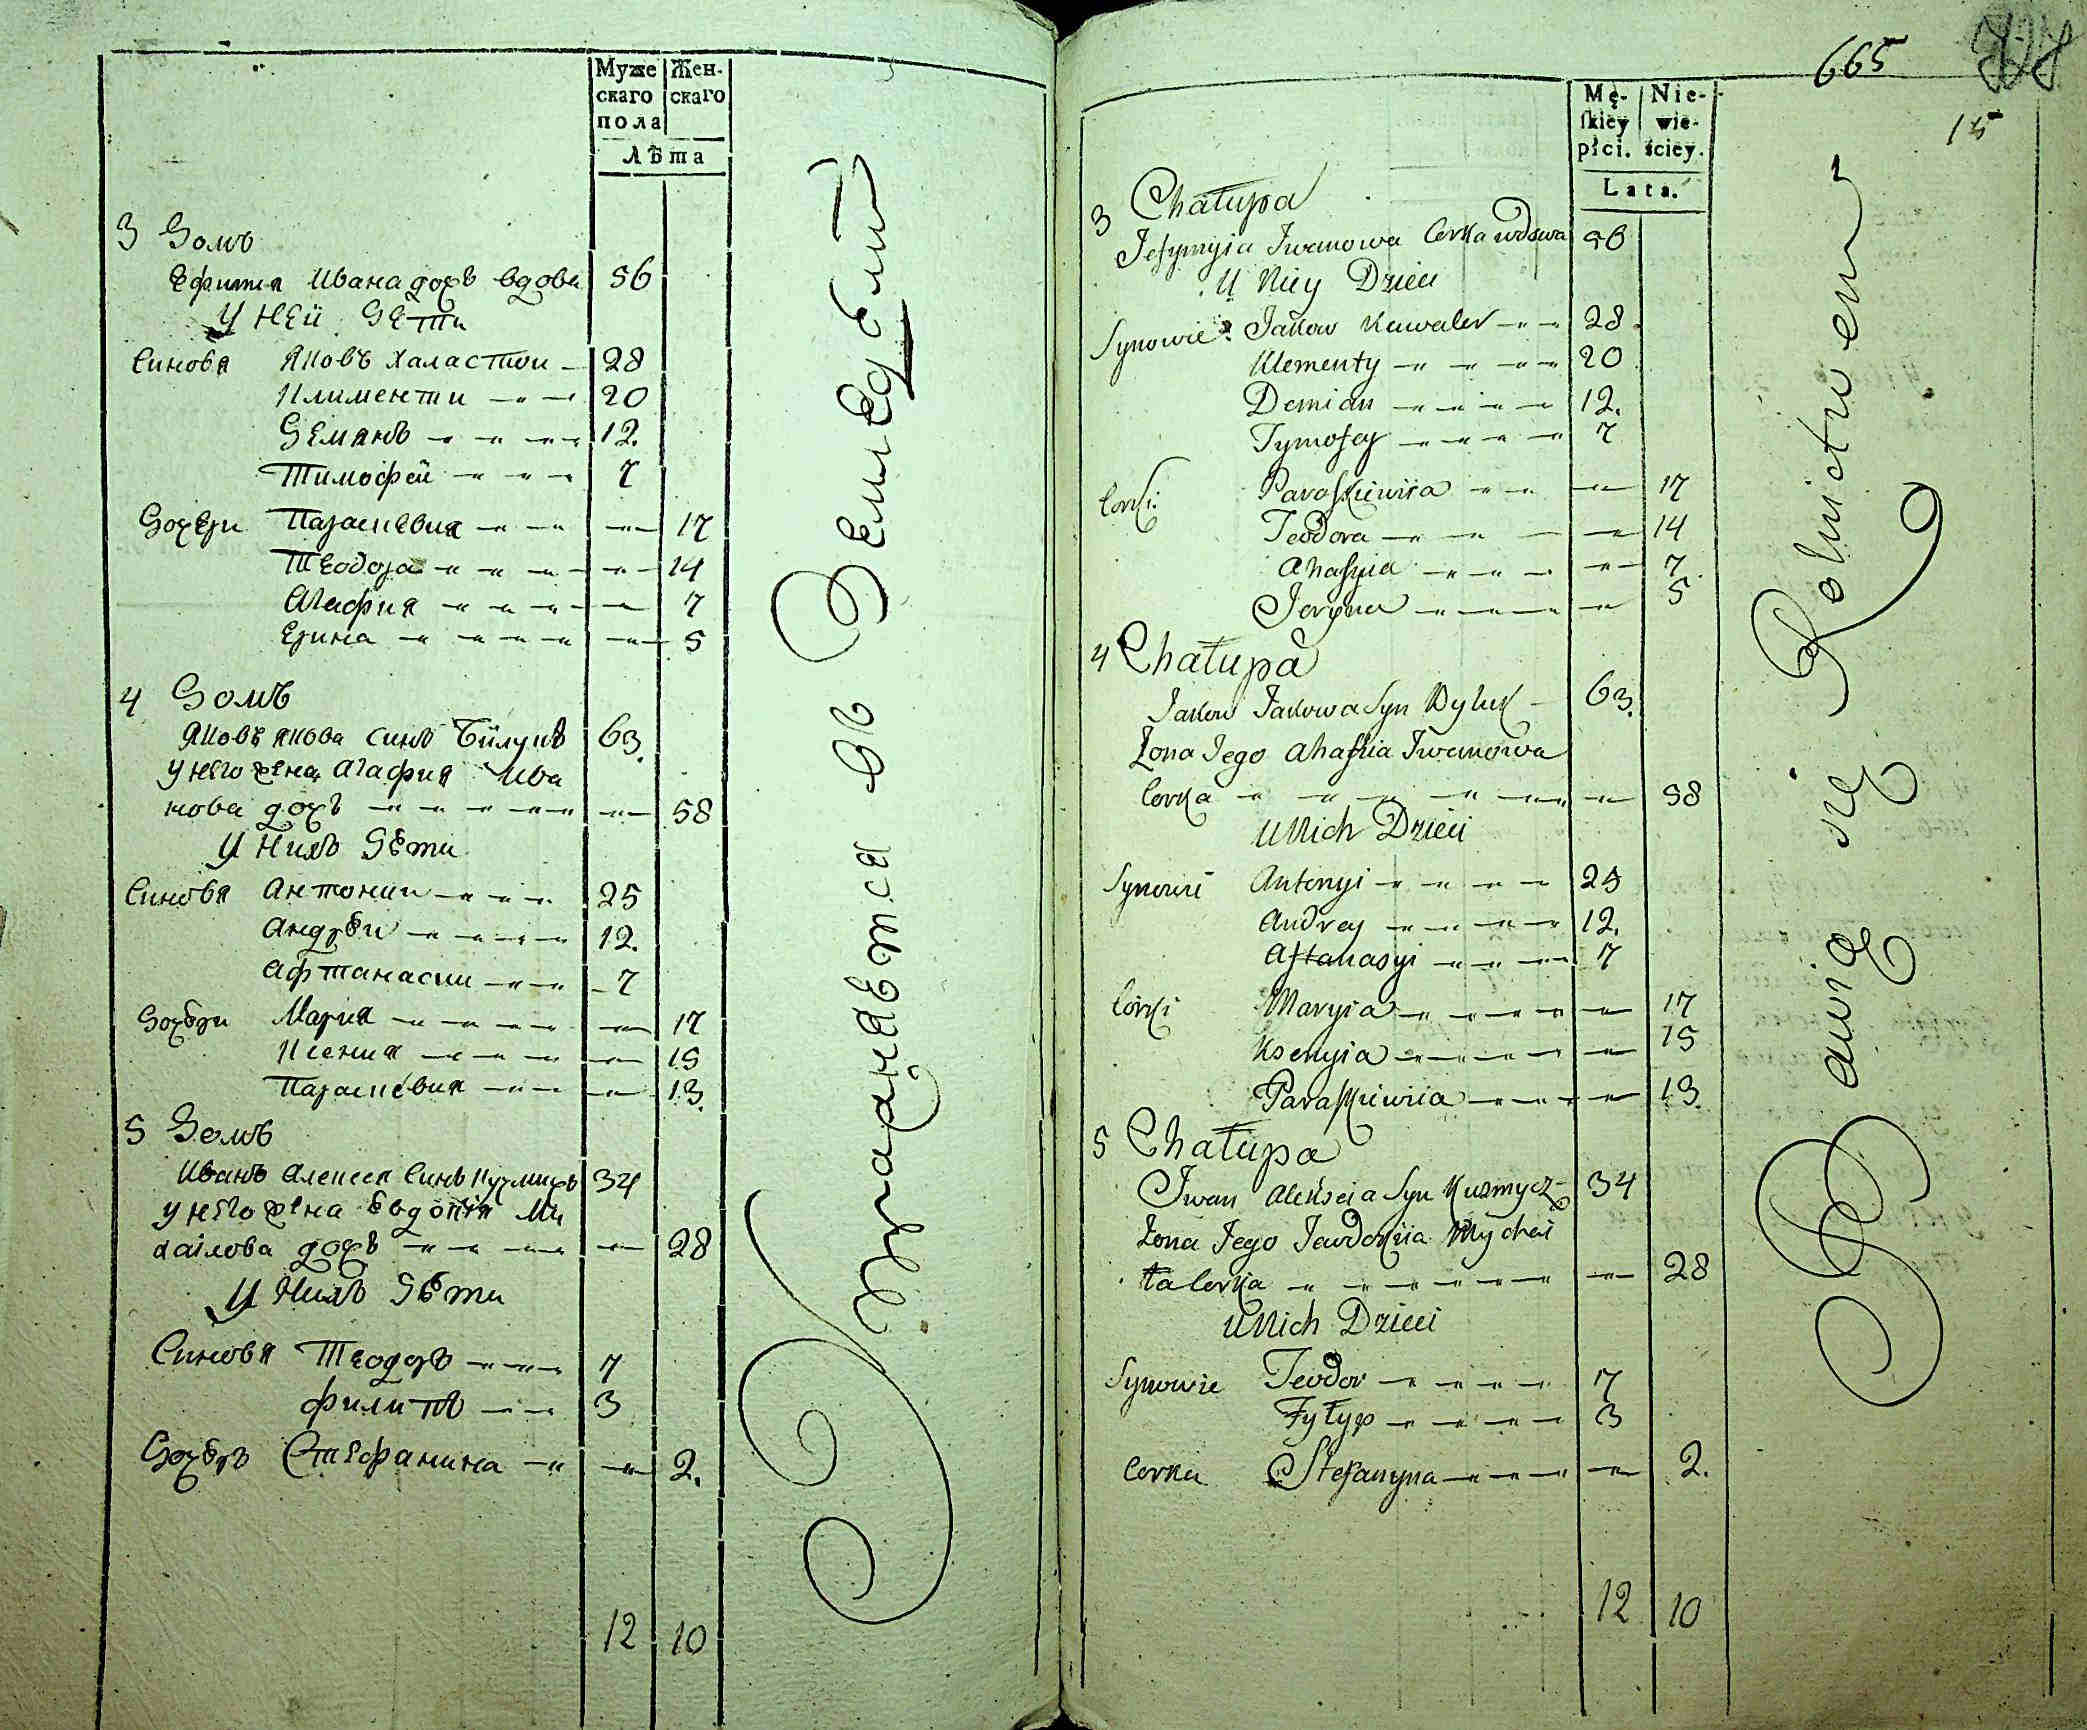 Муже Жен-
скаго скаго
пола
Лѣта
3 Домъ
Ефимия Ивана дочь вдова 56
У Неи Дети
Синовя Яковъ Халастои 28
Клименти 20
Демянъ 12.
Тимофеи 7
Дочери Параскевия 17
Теодора 14
Агафия 7
Ерина 5
4 Домъ
Яковъ Якова Синъ Билукъ 63.
у него жена Агафия Ива
нова дочь 58
У Нихъ Дѣти
Синовя Антонии 25
Андрѣи 12.
Афтанасии 7
Дочѣри Мария 17
Ксения 15
Параскевия 13.
5 Домъ
Иванъ Алексея Синъ Кузмичъ 34
у него жена Евдокия Ми
хаілова дочь 28
У Нихъ Дѣти
Синовя Теодоръ 7
Филипъ 3
Дочѣръ Стефанина 2.
12 10
Упражняется въ Земледелии
665
15
Mę- Nie-
skiey wie-
płci. ściey.
Lata.
3 Chałupa
Jefymyia Iwanowa Corka wdowa 56
U Niey Dzieci
Synowie Jakow Kawaler 28
Klementy 20
Demian 12.
Tymofey 7
Corki Paraskiewiia 17
Teodora 14
Ahafyia 7
Jeryna 5
4 Chałupa
Jakow Jakowa Syn Byluk 63.
Żona Jego Ahafiia Iwanowa
Corka 58
U Nich Dzieci
Synowie Antonyi 25
Andrey 12.
Aftanasyi 7
Córki Maryia 17
Ksenyia 15
Paraskiewiia 13.
5 Chałupa
Iwan Aleksieia Syn Kuzmycz 34
Żona Jego Jewdokiia Mychai
ła Corka 28
U Nich Dzieci
Synowie Teodor 7
Fyłyp 3
Corka Stefanyna 2.
12 10
Bawią się Rolnictwem